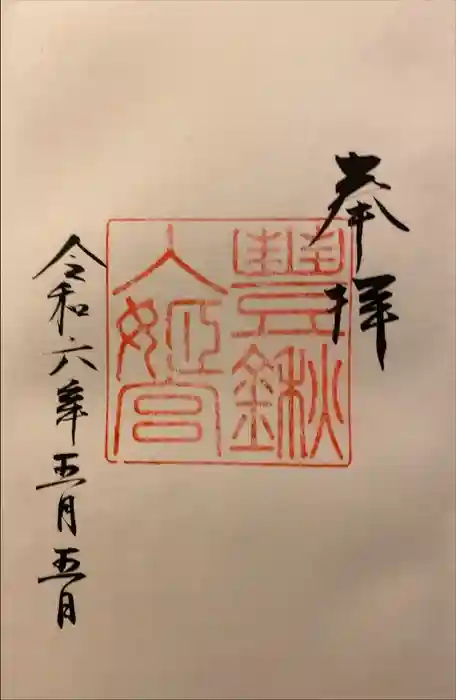 奉拝
豊鍬
入姫宮
令和六年五月五日